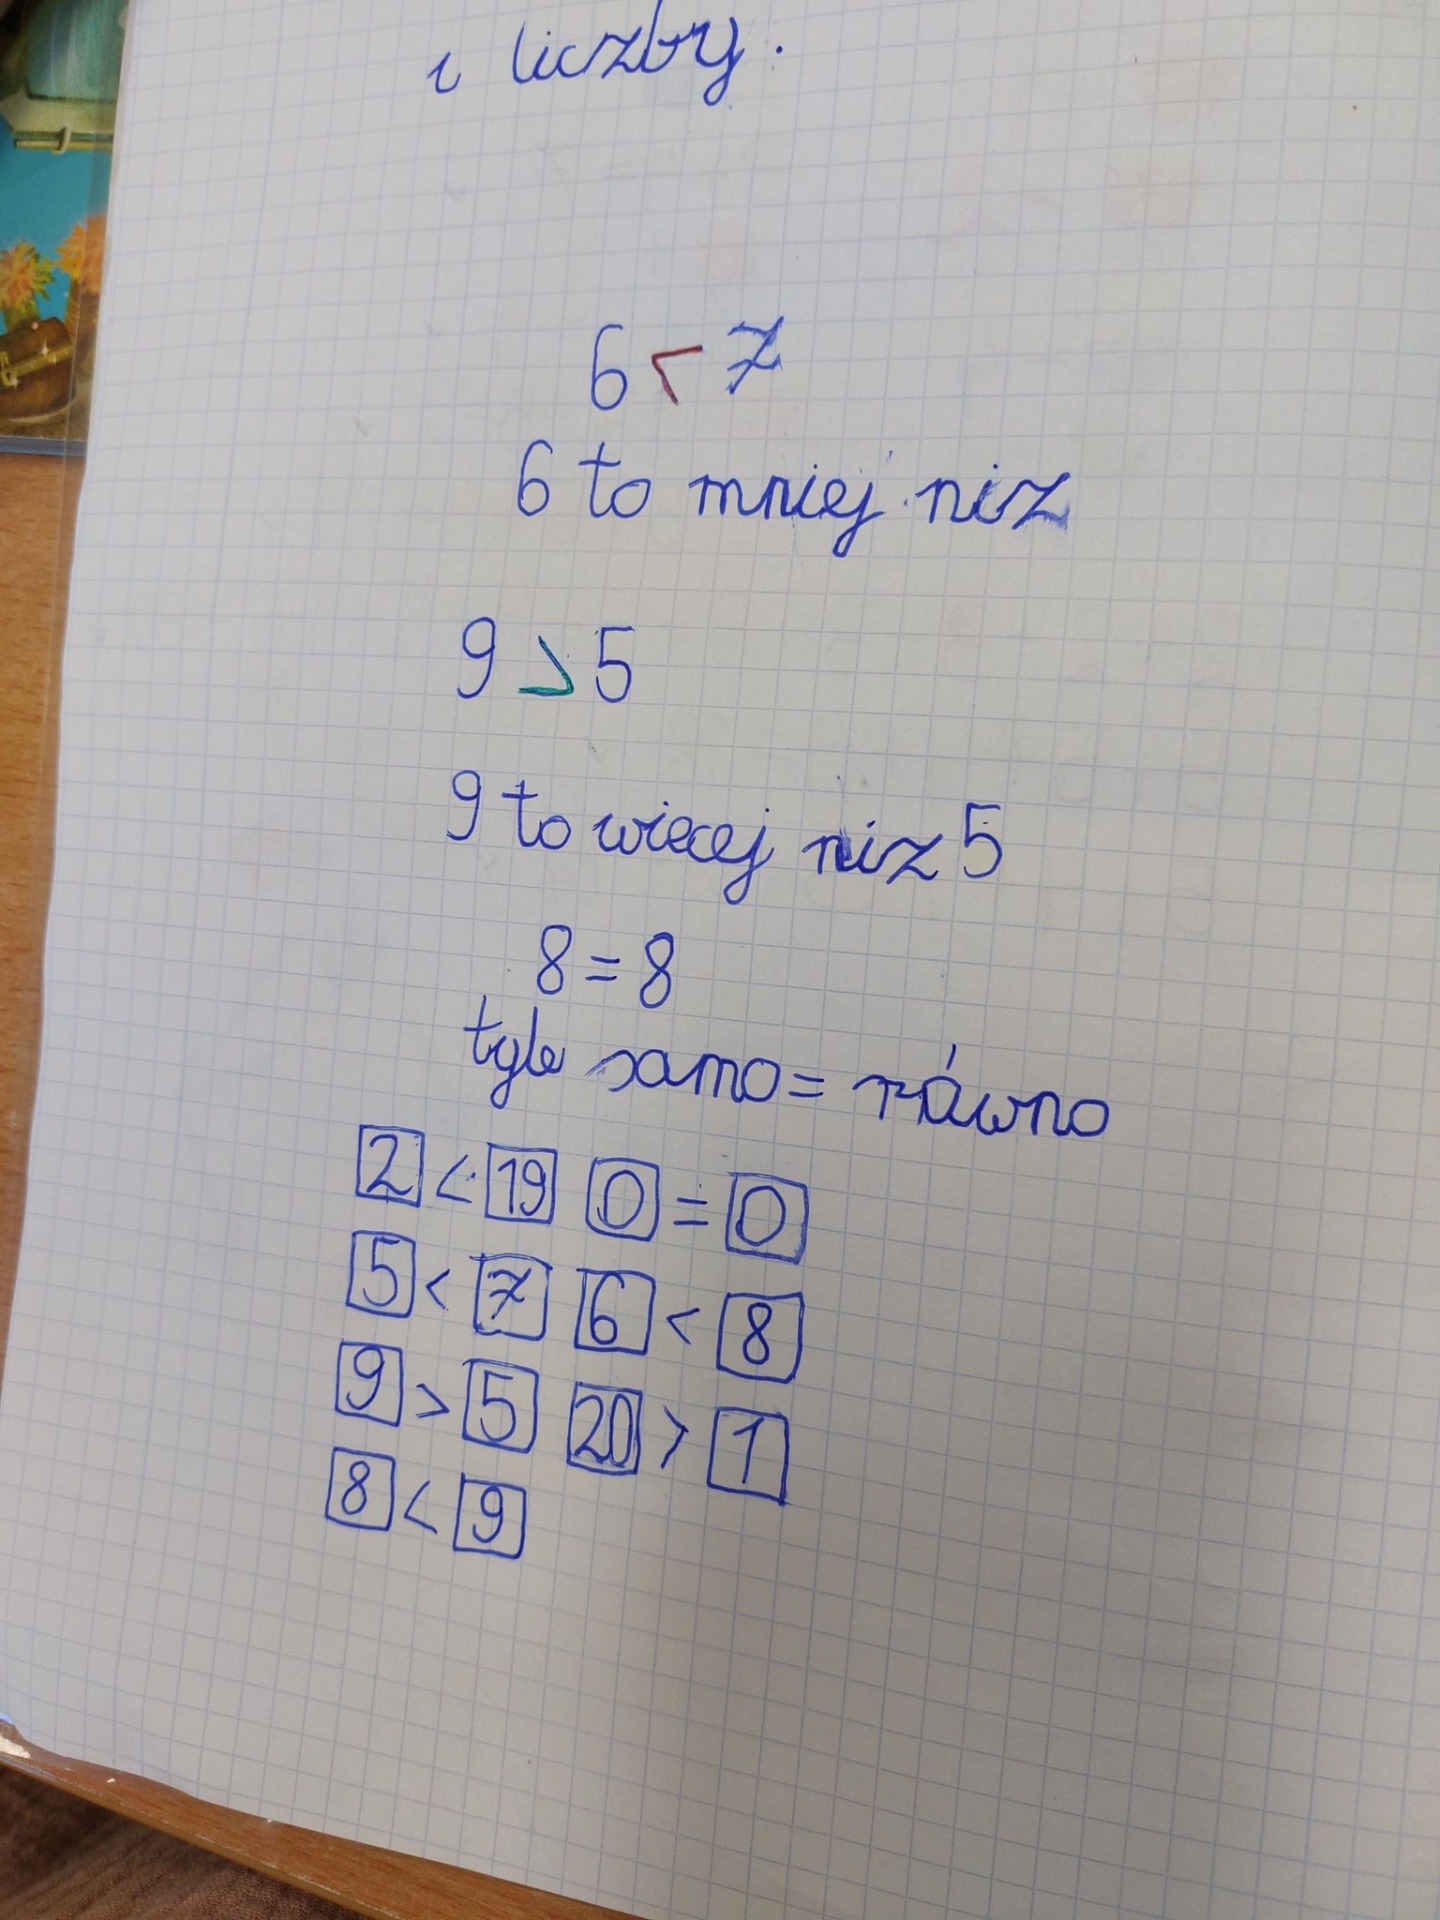 i liczby.
6 < 7
6 to mniej niz
9 > 5
9 to wiecej niz 5
8 = 8
tyle samo = równo
2 < 19 0 = 0
5 < 7 6 < 8
9 > 5 20 > 1
8 < 9